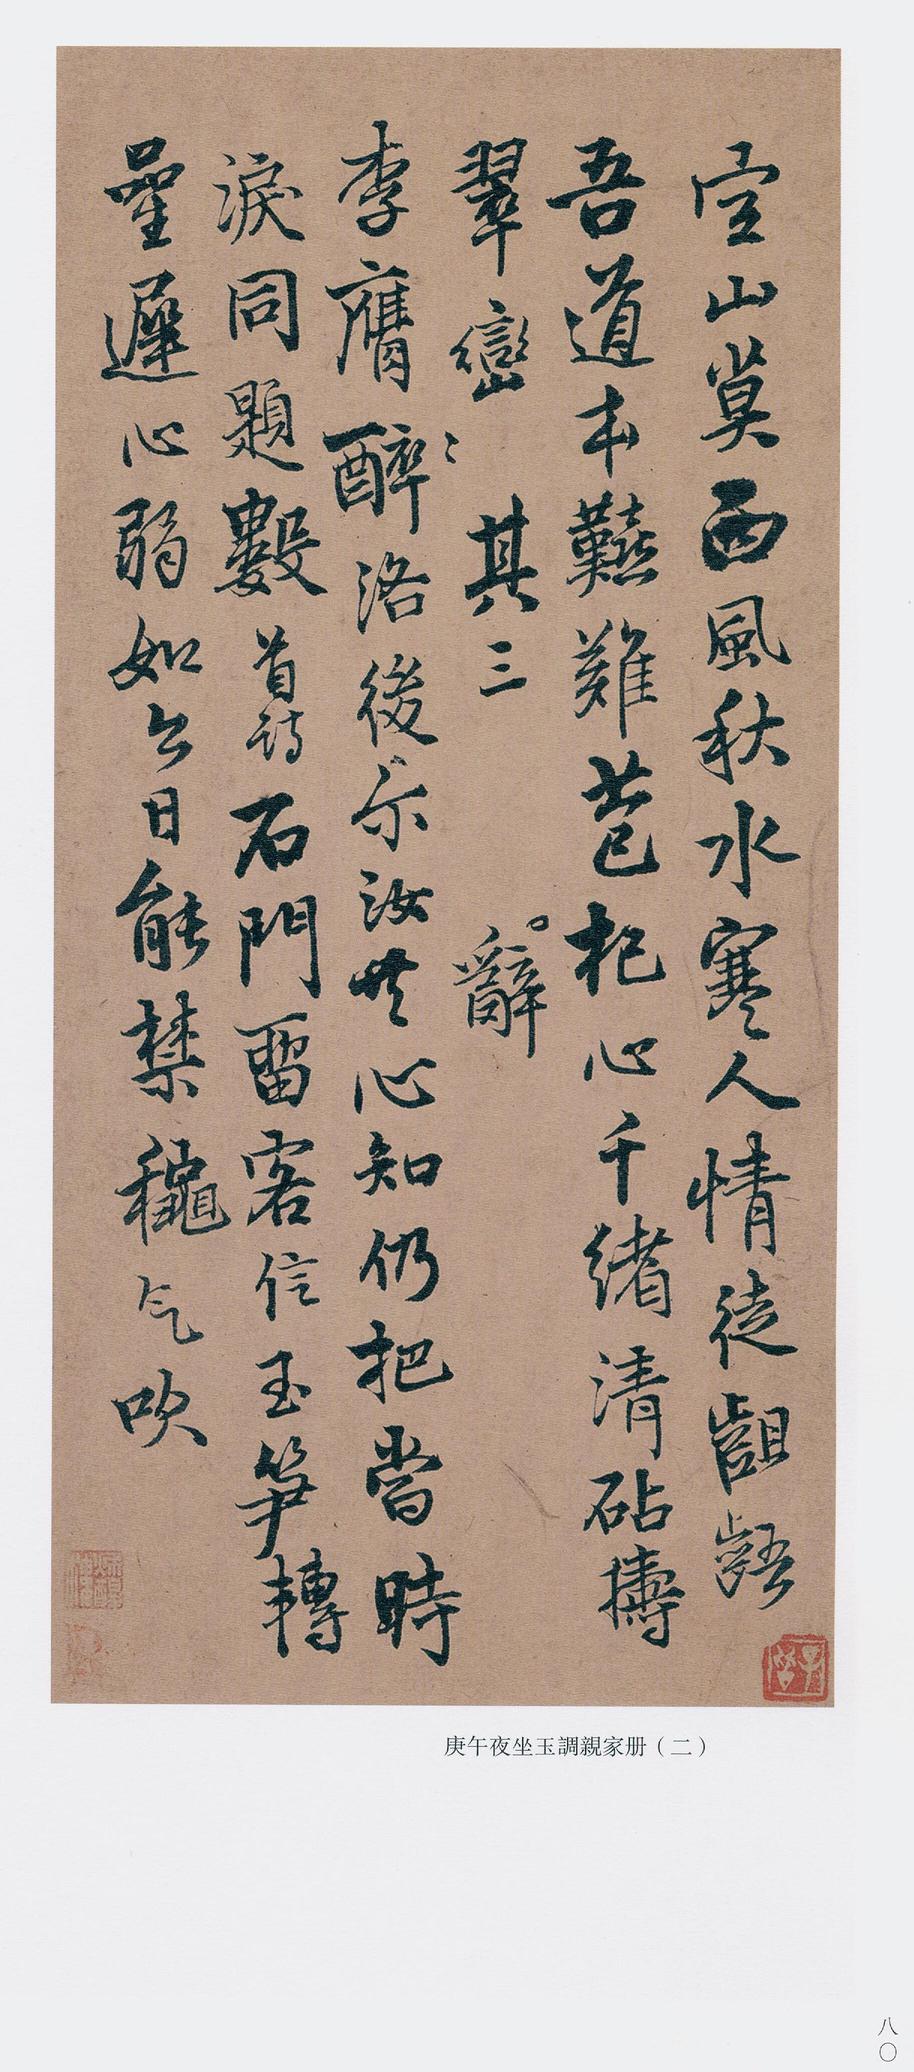 空山莫雨風秋水寒人情徒齟齬
吾道本艱難芑杞心千緒清砧擣
翠巒〻其三辭
李膺醉洛後示汝共心知仍把當時
淚同題數首詩石門留客信玉笋轉
星遲心弱如今日能禁龝气吹
庚午夜坐玉調親家册（二）
八〇